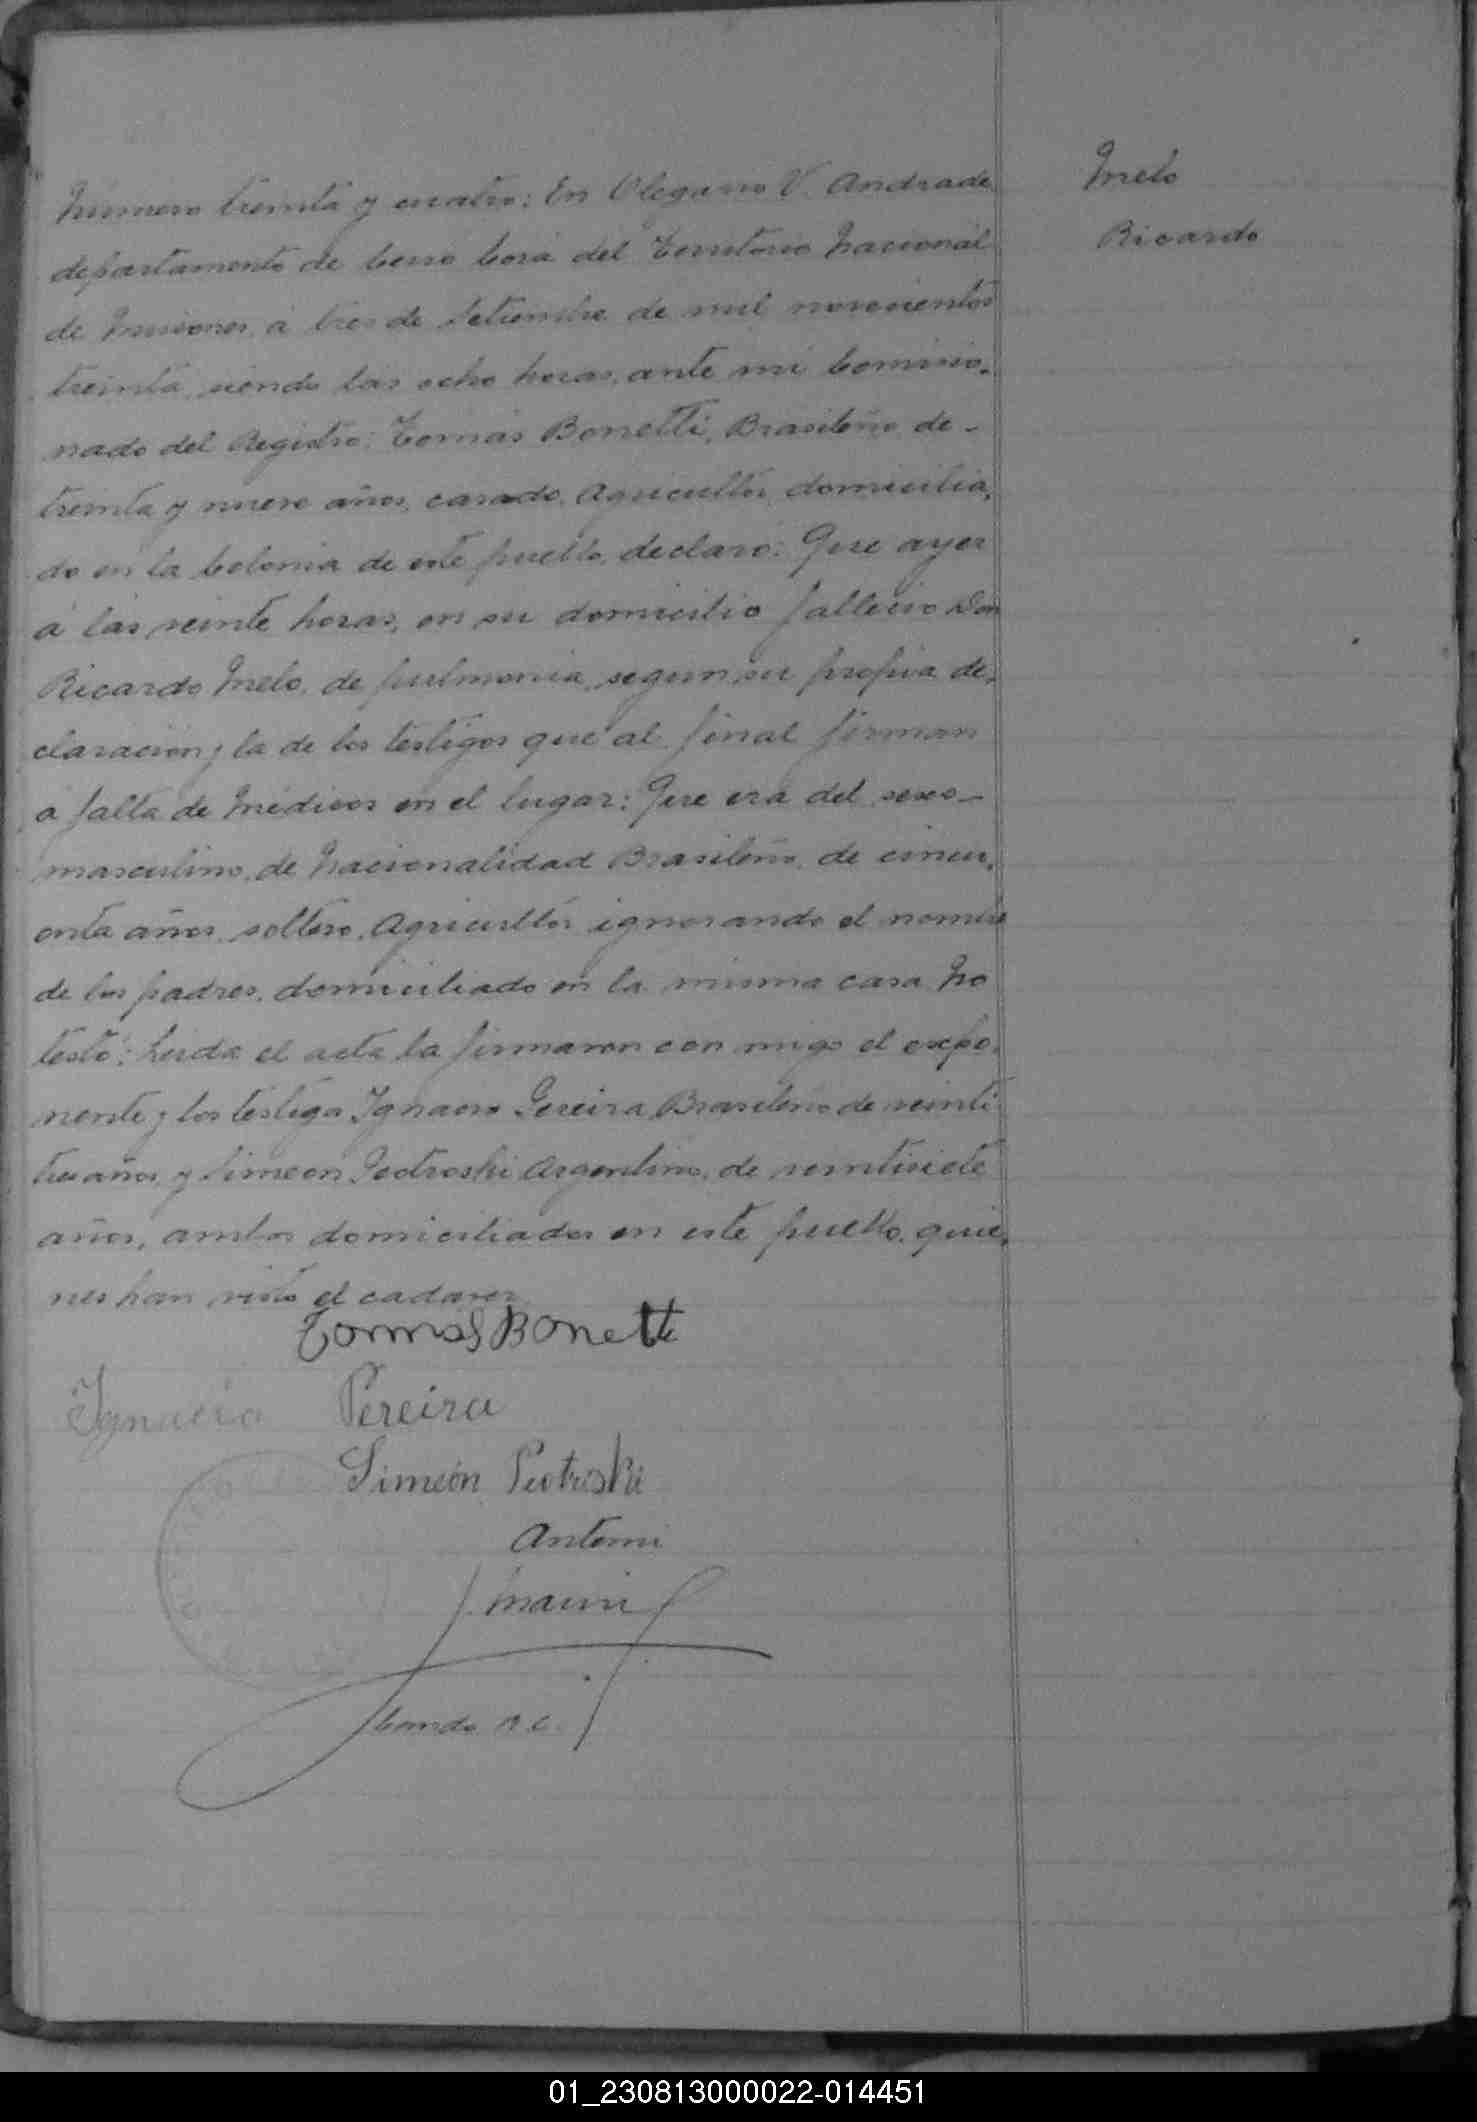 Número treinta y cuatro: En Olegario V. Andrade
departamento de Cerro Corá del Territorio Nacional
de Misiones, á tres de Setiembre de mil novecientos
treinta, siendo las ocho horas, ante mi Comisio-
nado del Registro: Tomás Bonetti, Brasileño de-
treinta y nueve años, casado, Agricultór, domicilia-
do en la Colonia de este pueblo, declaró: Que ayer
á las veinte horas, en su domicilio fallecio Don
Ricardo Melo, de pulmonia, segun su propia de-
claración y la de los testigos que al final firman
á falta de Médicos en el lugar: Que era del sexo-
masculino, de Nacionalidad Brasileño, de cincu-
enta años, soltero, Agricultór ignorando el nombre
de los padres, domiciliado en la misma casa No
testó: Leida el acta la firmaron con migo el expo-
nente y los testigos Ignacio Pereira, Brasileño de veinti
tres años y Simeon Pedroski Argentino, de veintisiete
años, ambos domiciliados en este pueblo, quie-
nes han visto el cadaver
Tomás Bonetti
Ignacio Pereira
Simeón Piotroski
Antoni
Comdo R. C.
Melo
Ricardo
01_230813000022-014451